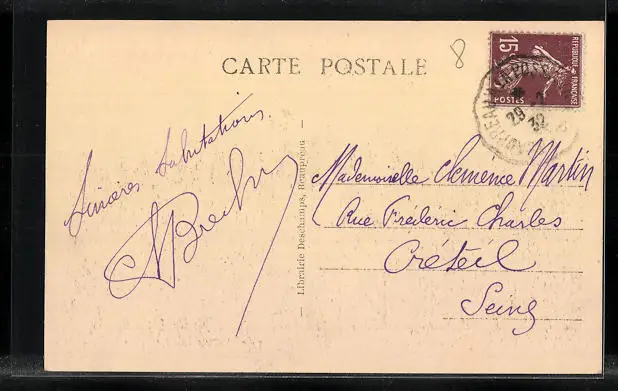 CARTE POSTALE
8
15c
REPUBLIQUE FRANÇAISE
POSTES
29 - 7
32
Sincères Salutations.
Librairie Deschamps, Beaupreau
Mademoiselle Clemence Martin
Rue Frédéric Charles
Créteil
Seine